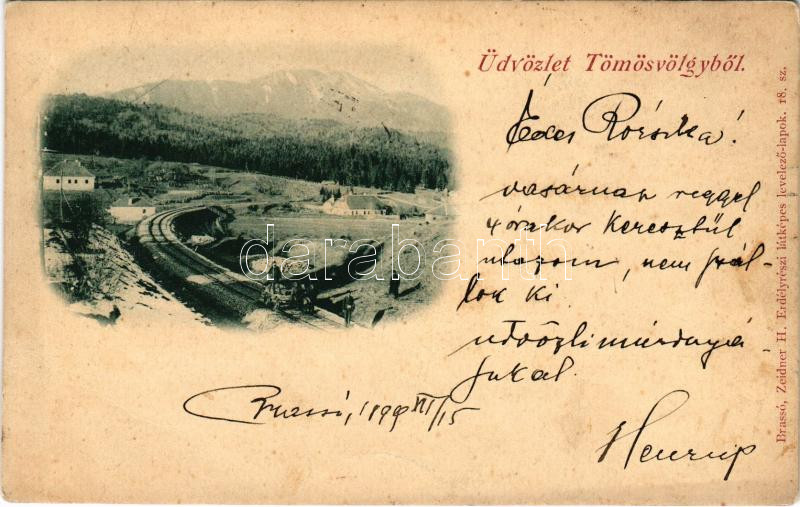 Üdvözlet Tömösvölgyből.
Édes Rózsika!
vasárnap reggel
4 órakor keresztül
utazom, nem szál-
lok ki
üdvözli
jukat.
Brassó, 1899 VI/15
darabanth
Brassó, Zeidner H. Erdélyrészi látképes levelező-lapok. 18. sz.